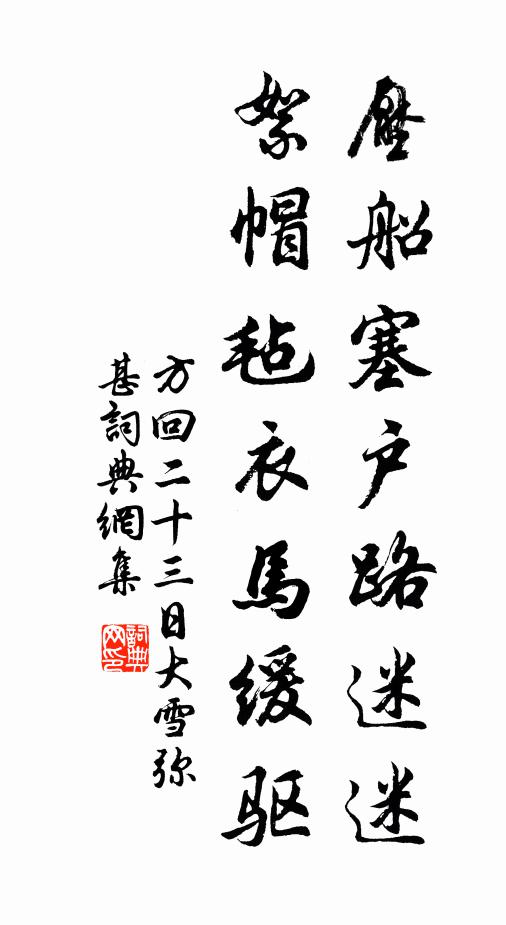 壓船塞户路迷迷
絮帽毡衣馬缓驱
方回二十三日大雪弥
甚詞典網集
詞典网印